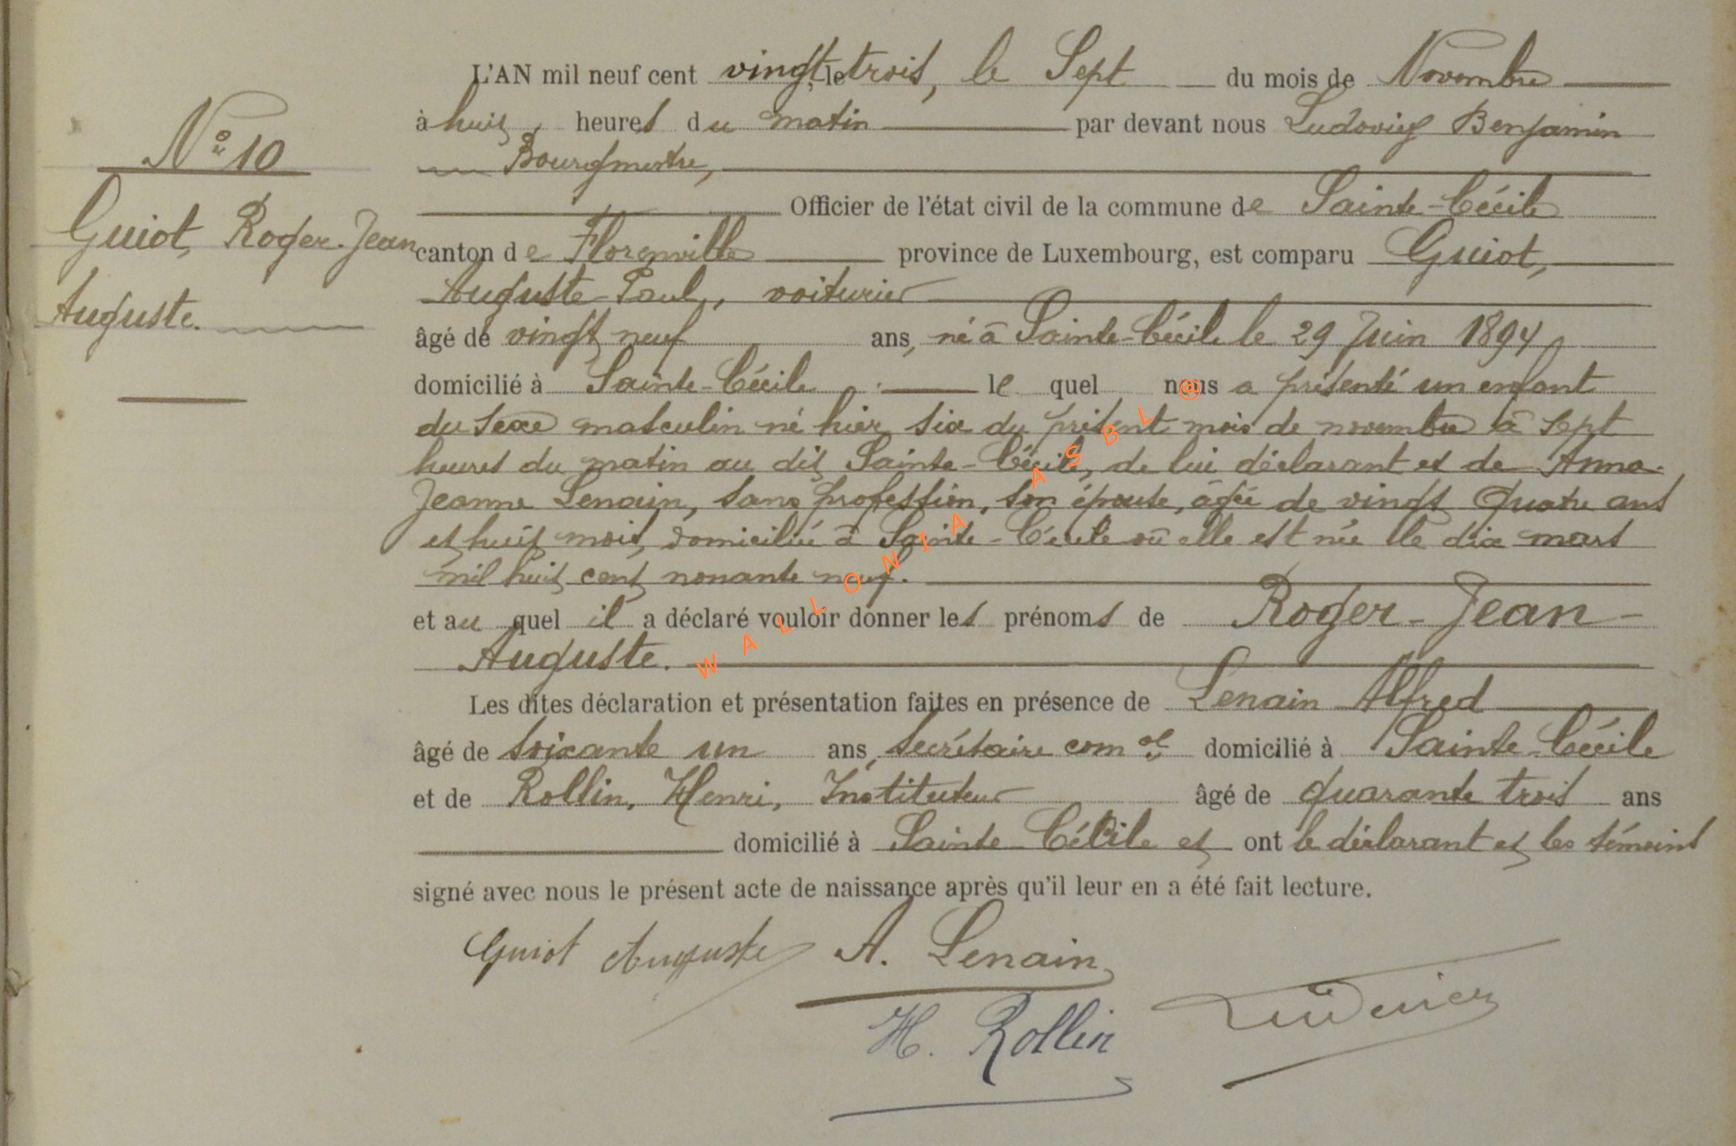 L'AN mil neuf cent vingt le trois, le Sept du mois de Novembre
à huit heures du matin par devant nous Ludovicy Benjamin
Bourgmestre,
N° 10
Officier de l'état civil de la commune de Sainte-Cécile
Guiot, Roger-Jean
canton de Florenville province de Luxembourg, est comparu Guiot,
Auguste-Paul, voiturier
Auguste.
âgé de vingt neuf ans, né à Sainte-Cécile le 29 Juin 1894
domicilié à Sainte-Cécile lequel nous a présenté un enfant
du sexe masculin né hier six du présent mois de novembre à sept
heures du matin au dit Sainte-Cécile, de lui déclarant et de Anna-
Jeanne Lenain, sans profession, son épouse, âgée de vingt quatre ans
et huit mois, domiciliée à Sainte-Cécile où elle est née le dix mars
mil huit cent nonante neuf.
et auquel il a déclaré vouloir donner les prénoms de Roger-Jean-
Auguste.
WALLONIA ASBL ®
Les dites déclaration et présentation faites en présence de Lenain Alfred
âgé de soixante un ans, secrétaire com al domicilié à Sainte-Cécile
et de Rollin, Henri, Instituteur âgé de quarante trois ans
domicilié à Sainte-Cécile et ont le déclarant et les témoins
signé avec nous le présent acte de naissance après qu'il leur en a été fait lecture.
Guiot Auguste A. Lenain
H. Rollin